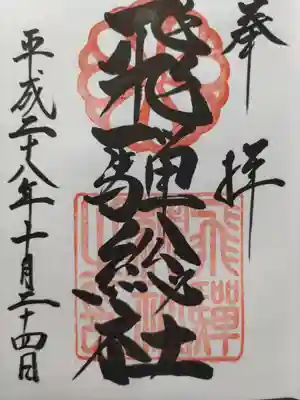 奉拝
飛騨総社
平成二十八年十月二十四日